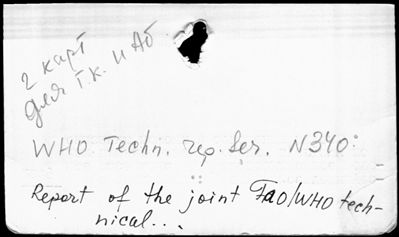 2 карт
для Г.к. и Аб
WHO Techn. rep. Ser. N340:
Report of the joint FaO/WHO tech-
nical...